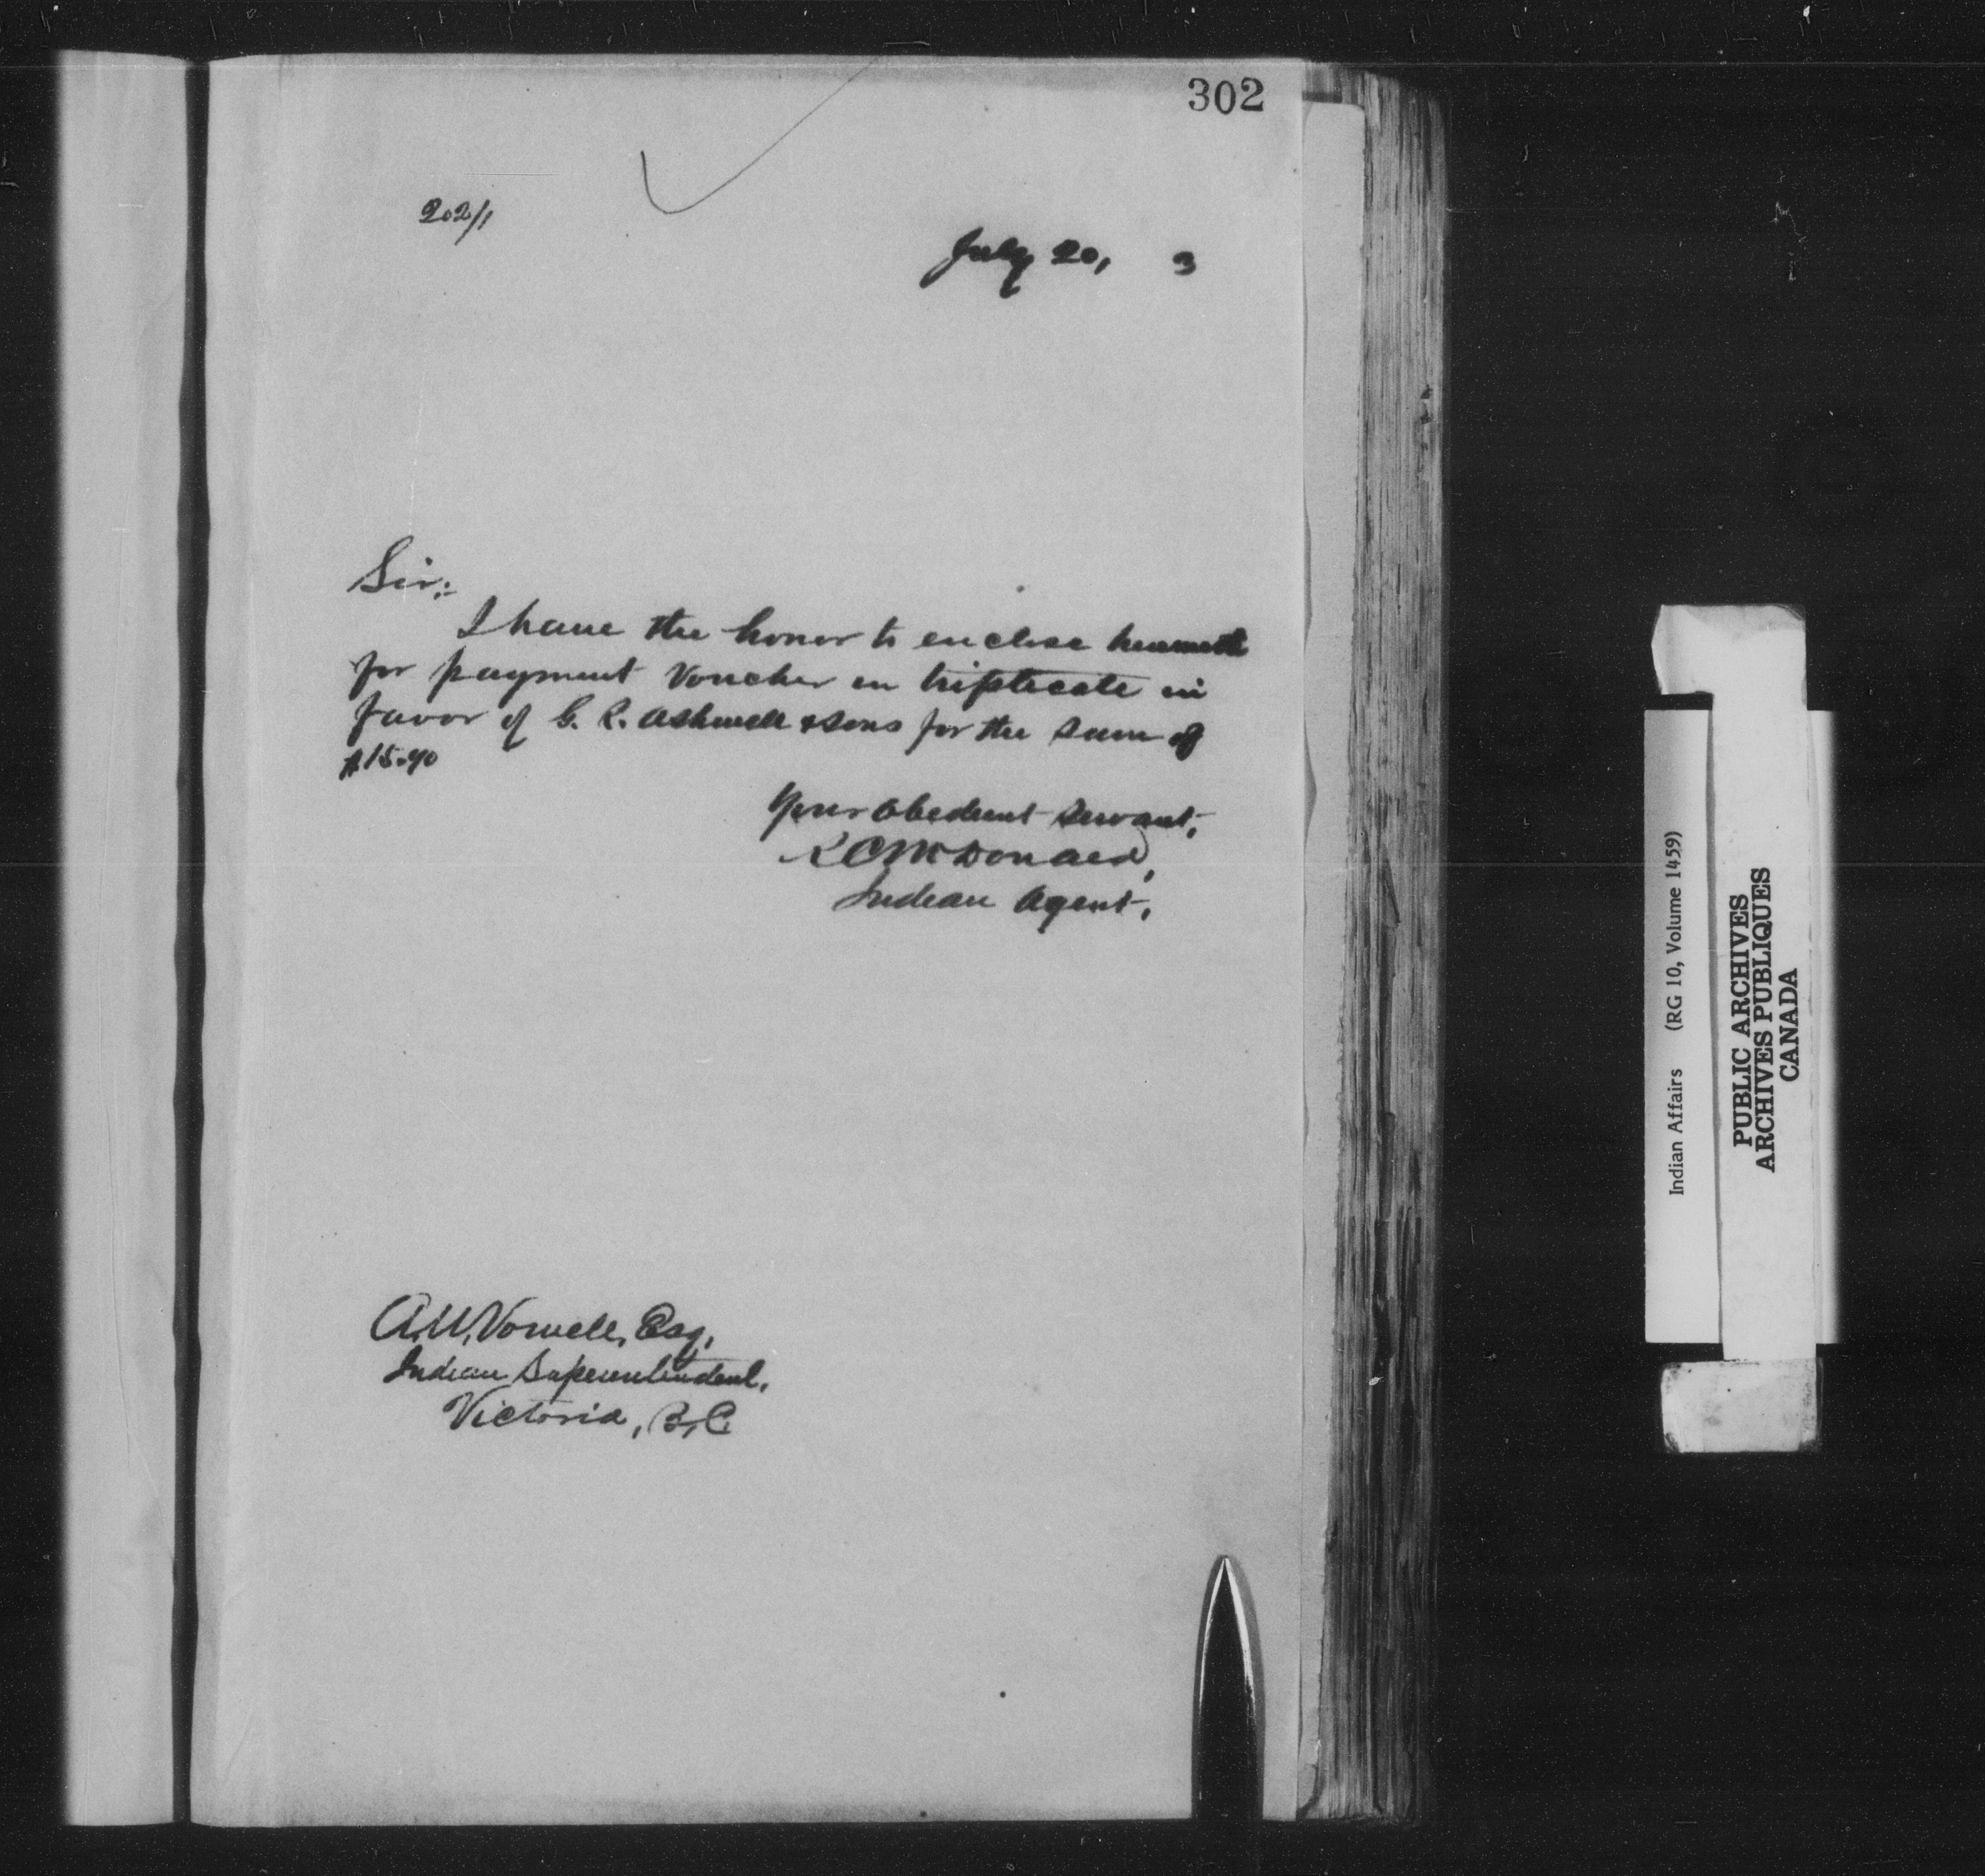 302
202/1
July 20, 3
Sir:
I have the honor to enclose herewith
for payment Voucher in triplicate in
favor of G. R. Ashwell & Sons for the sum of
$15.90
Your obedient servant,
R C McDonald,
Indian Agent,
A. W. Vowell, Esq,
Indian Superintendent,
Victoria, B, C
Indian Affairs (RG 10, Volume 1459)
PUBLIC ARCHIVES
ARCHIVES PUBLIQUES
CANADA